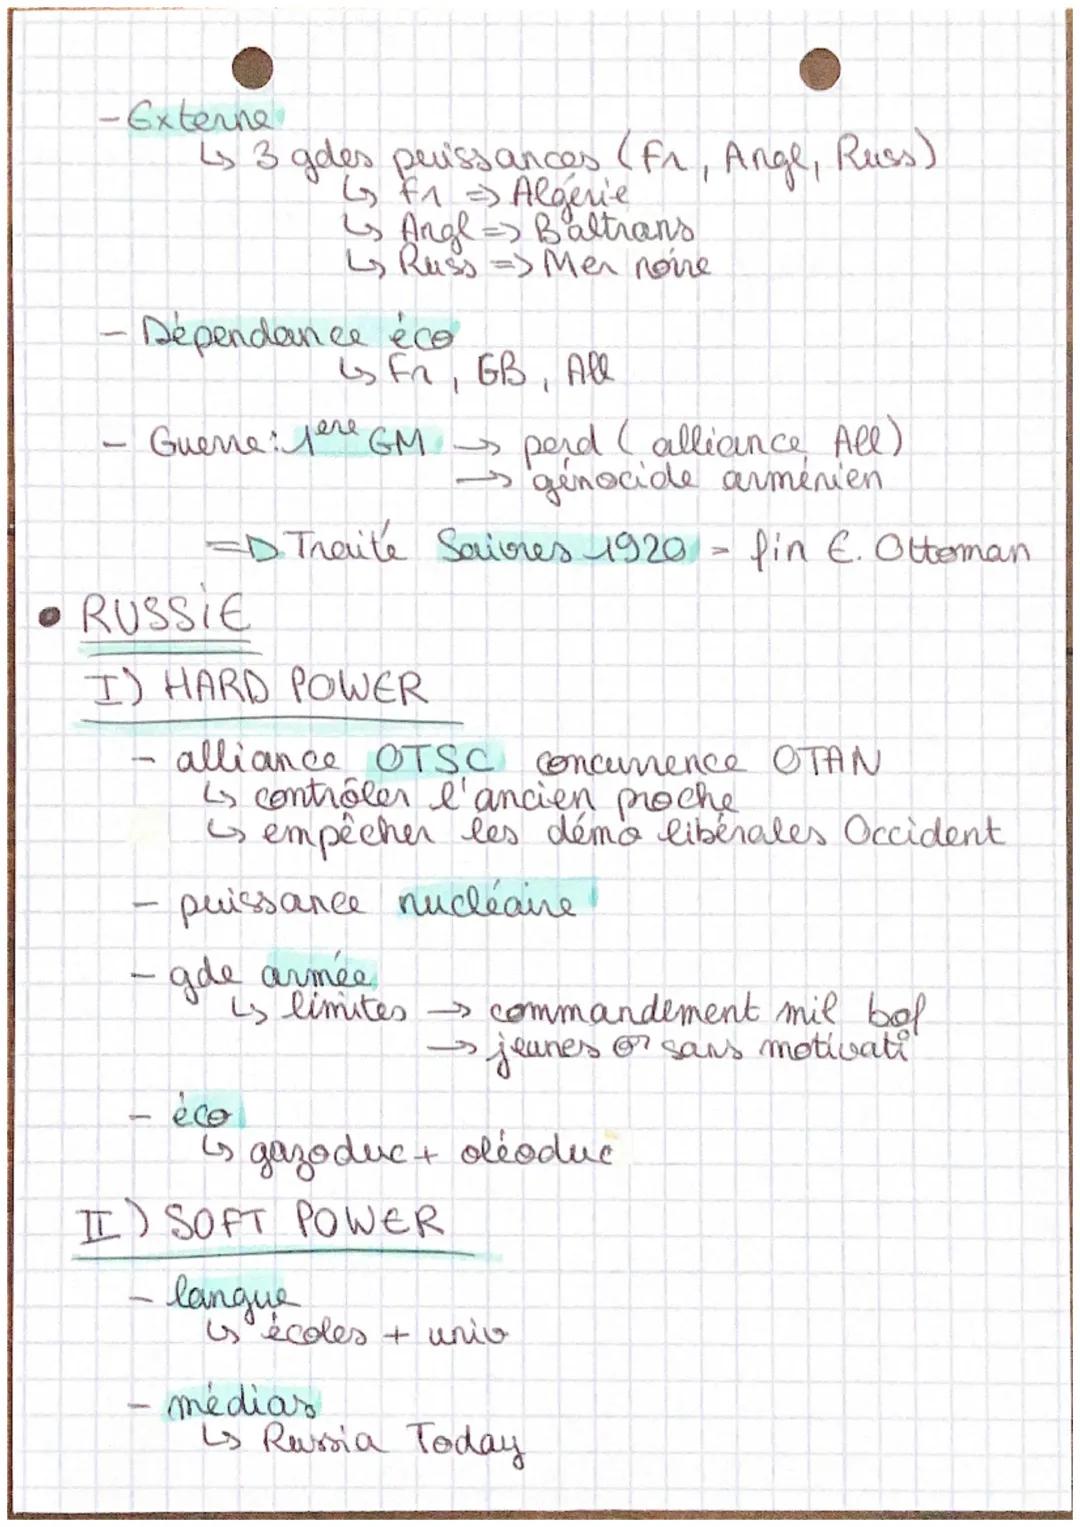 - Externe
↳ 3 gdes puissances (Fr, Angl, Russ)
↳ Fr => Algérie
↳ Angl => Baltrans
↳ Russ => Mer noire
- Dépendance éco
↳ Fr, GB, All
- Guerre : 1ere GM → perd (alliance All)
→ génocide arménien
=> Traité Saivres 1920 = fin E. Ottoman
• RUSSIE
I) HARD POWER
- alliance OTSC concurrence OTAN
↳ contrôler l'ancien proche
↳ empêcher les démo libérales Occident
- puissance nucléaire
- gde armée
↳ limites → commandement mil bof
→ jeunes sans motivati°
- éco
↳ gazoduc + oléoduc
II) SOFT POWER
- langue
↳ écoles + univ
- médias
↳ Russia Today